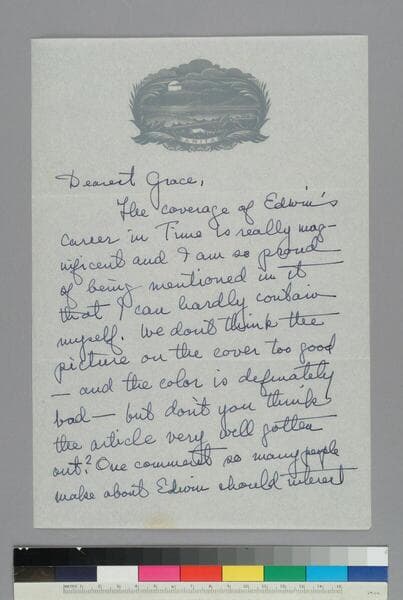 ANITA
Dearest Grace,
The coverage of Edwin's
career in Time is really mag-
nificent and I am so proud
of being mentioned in it
that I can hardly contain
myself. We don't think the
picture on the cover too good
— and the color is definately
bad — but don't you think
the article very well gotten
out? One comment so many people
make about Edwin should interest